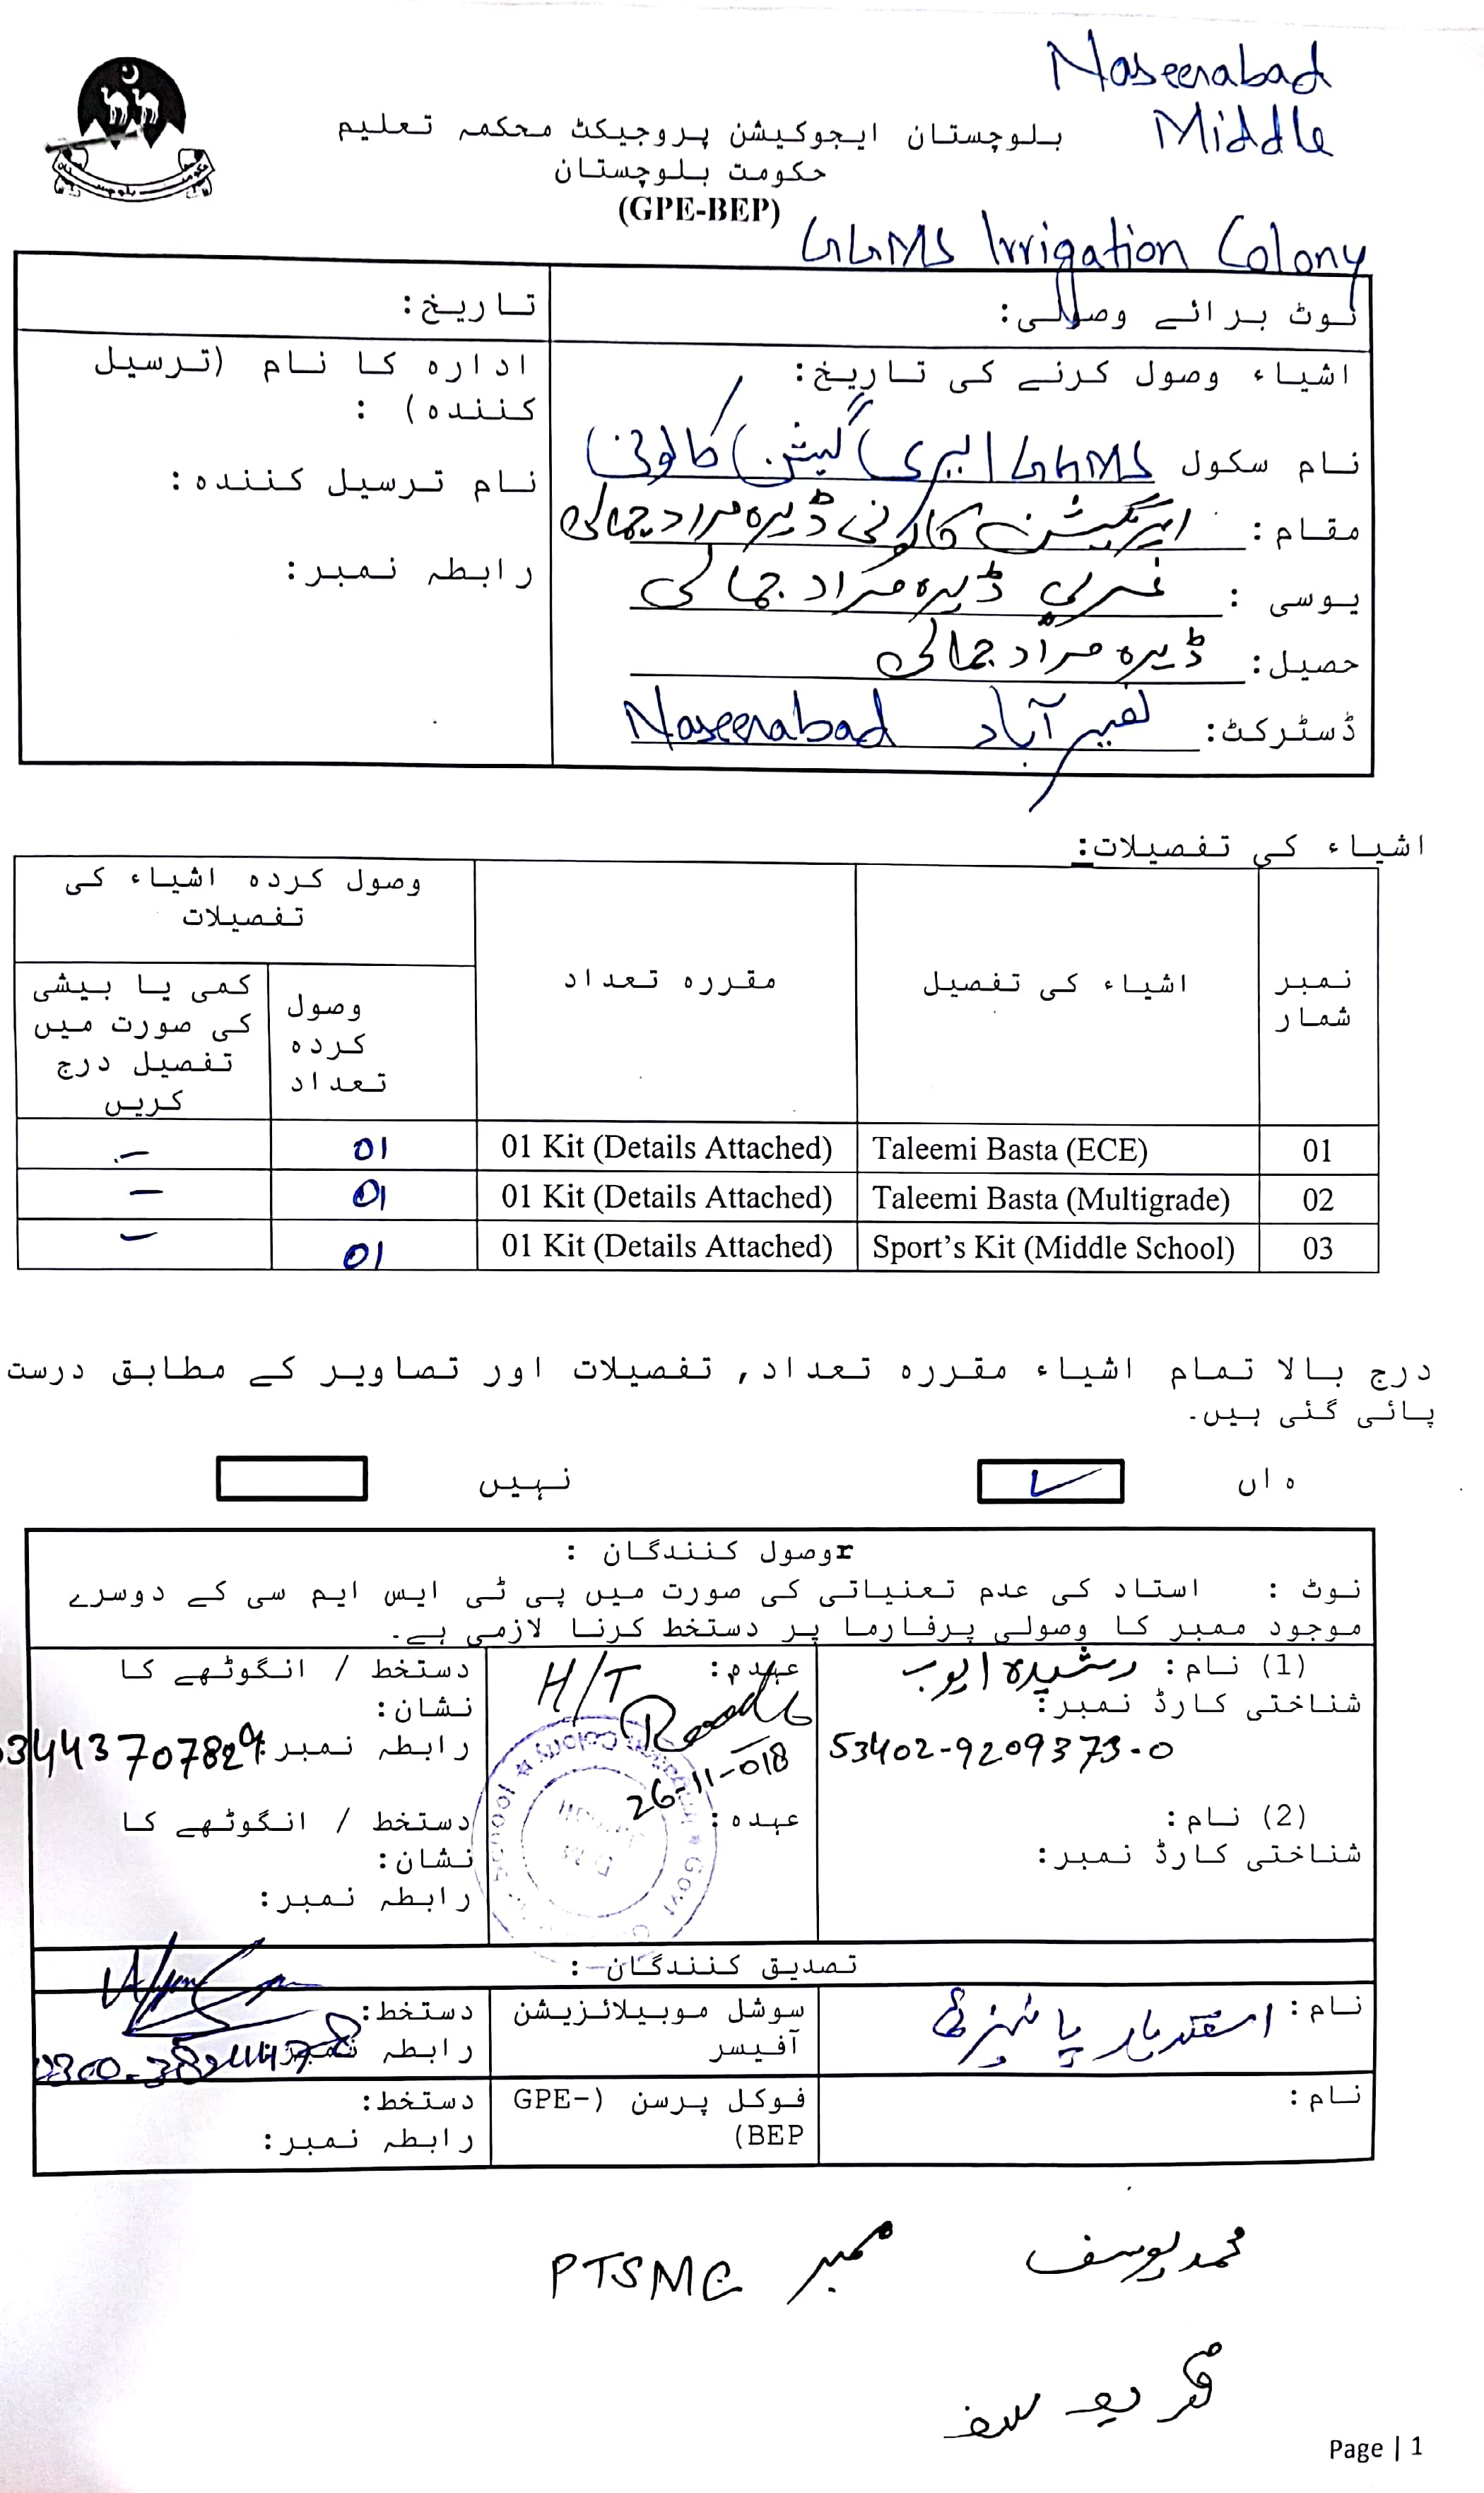 Naseerabad
Middle
بلوچستان ایجوکیشن پروجیکٹ محکمہ تعلیم
حکومت بلوچستان
(GPE-BEP)
GGMS Irrigation Colony
نوٹ برائے وصولی:
تاریخ:
اشیاء وصول کرنے کی تاریخ:
ادارہ کا نام (ترسیل کنندہ) :
نام سکول GGMS ایری گیشن کالونی
نام ترسیل کنندہ:
مقام: ایریگیشن کالونی ڈیرہ مراد جمالی
رابطہ نمبر:
یوسی : غربی ڈیرہ مراد جمالی
حصیل: ڈیرہ مراد جمالی
ڈسٹرکٹ: نصیر آباد Naseerabad
اشیاء کی تفصیلات:
نمبر شمار
اشیاء کی تفصیل
مقررہ تعداد
وصول کردہ اشیاء کی تفصیلات
وصول کردہ تعداد
کمی یا بیشی کی صورت میں تفصیل درج کریں
01 Taleemi Basta (ECE) 01 Kit (Details Attached) 01 -
02 Taleemi Basta (Multigrade) 01 Kit (Details Attached) 01 -
03 Sport's Kit (Middle School) 01 Kit (Details Attached) 01 -
درج بالا تمام اشیاء مقررہ تعداد, تفصیلات اور تصاویر کے مطابق درست
پائی گئی ہیں۔
ہاں ✓ نہیں
rوصول کنندگان :
نوٹ : استاد کی عدم تعنیاتی کی صورت میں پی ٹی ایس ایم سی کے دوسرے
موجود ممبر کا وصولی پرفارما پر دستخط کرنا لازمی ہے۔
(1) نام: رشیدہ ایوب
شناختی کارڈ نمبر:
53402-9209373-0
عہدہ: H/T
26-11-018
دستخط / انگوٹھے کا نشان:
رابطہ نمبر: 03443707829
(2) نام:
شناختی کارڈ نمبر:
عہدہ:
دستخط / انگوٹھے کا نشان:
رابطہ نمبر:
تصدیق کنندگان :
نام:
سوشل موبیلائزیشن آفیسر
دستخط:
رابطہ نمبر:
نام:
فوکل پرسن (GPE-BEP)
دستخط:
رابطہ نمبر:
محمد یوسف ممبر PTSMC
Page | 1